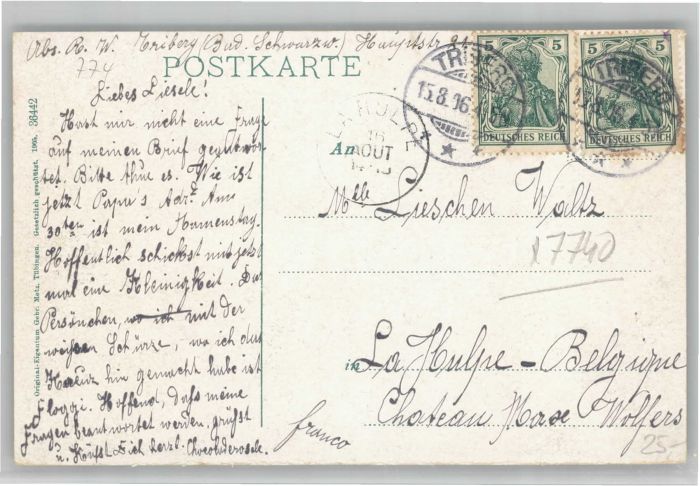 Abs. R. W. Triberg (Bad. Schwarzw.) Hauptstr.
774
POSTKARTE
5 5
5 5
DEUTSCHES REICH
DEUTSCHES REICH
TRIBERG
15.8.16
TRIBERG
LA HULPE
16
AOUT
An
Liebes Liesele!
Hast mir nicht eine Frage
auf meinen Brief geantwor-
tet. Bitte thue es. Wie ist
jetzt Papa's Adr.? Am
30ten ist mein Namenstag.
Hoffentlich schickst mir jetzt
mal eine Kleinigkeit. Das
Persönchen, wo ich mit der
weißen Schürze, wo ich das
Kreuz hin gemacht habe ist
Floggi. Hoffend, daß meine
Fragen beantwortet werden, grüßt
u. küßt Dich herzl. Chocoladerosele.
Mlle Lieschen Waltz
17740
in La Hulpe - Belgique
Chateau Max Wolfers
franco
25-
Original-Eigentum Gebr. Metz, Tübingen. Gesetzlich geschützt. 1905. 36442